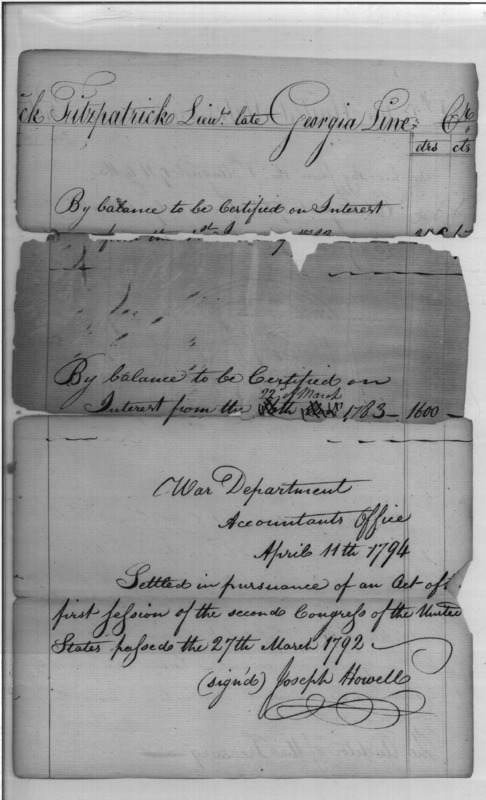 ck Fitzpatrick Lieut. late Georgia Line Cr.
drs cts
By balance to be Certified on Interest
from the 1st
By balance to be Certified on
22d of March
Interest from the 1783 – 1600 –
War Department
Accountants Office
April 11th 1794
Settled in pursuance of an Act of
first session of the second Congress of the United
States passed the 27th March 1792
(sign'd) Joseph Howell